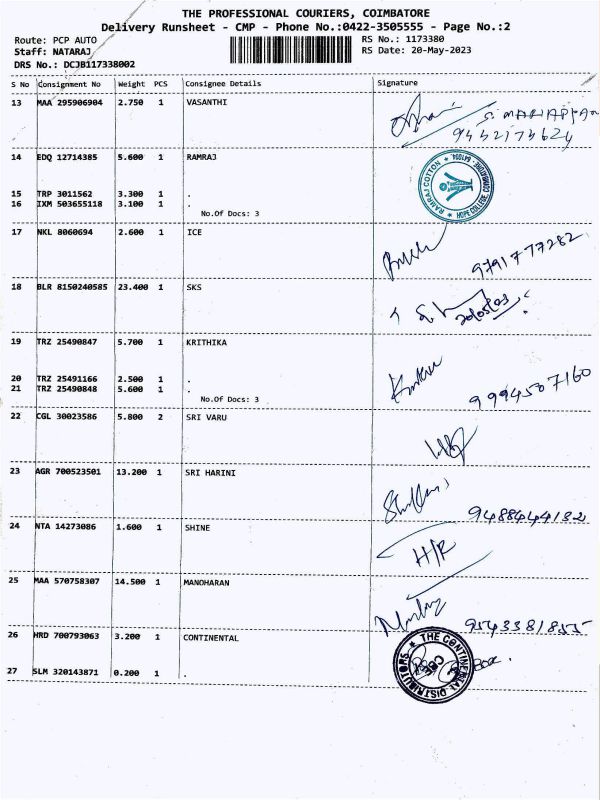 THE PROFESSIONAL COURIERS, COIMBATORE
Delivery Runsheet - CMP - Phone No.:0422-3505555 - Page No.:2
Route: PCP AUTO RS No.: 1173380
Staff: NATARAJ RS Date: 20-May-2023
DRS No.: DCJB117338002
S No Consignment No Weight PCS Consignee Details Signature
13 MAA 295906904 2.750 1 VASANTHI
S. MARIAPPAN
9452173624
14 EDQ 12714385 5.600 1 RAMRAJ
RAMRAJ COTTON * HOPE COLLEGE, COIMBATORE - 641004. *
15 TRP 3011562 3.300 1 .
16 IXM 503655118 3.100 1 .
No.Of Docs: 3
17 NKL 8060694 2.600 1 ICE
9791777282
18 BLR 8150240585 23.400 1 SKS
19 TRZ 25490847 5.700 1 KRITHIKA
20 TRZ 25491166 2.500 1 .
21 TRZ 25490848 5.600 1 .
No.Of Docs: 3
9994507160
22 CGL 30023586 5.800 2 SRI VARU
23 AGR 700523501 13.200 1 SRI HARINI
9488444132
24 NTA 14273086 1.600 1 SHINE
H/R
25 MAA 570758307 14.500 1 MANOHARAN
9543381855
26 HRD 700793063 3.200 1 CONTINENTAL
THE CONTINENTAL DISTRIBUTORS * CBE *
27 SLM 320143871 0.200 1 .